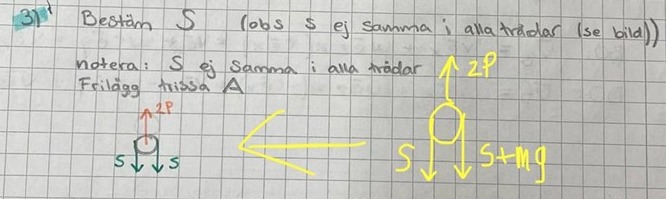 3) Bestäm S (obs s ej samma i alla trådar (se bild))
notera: S ej samma i alla trådar
Frilägg trissa A
2P
2P
S S
S S+mg